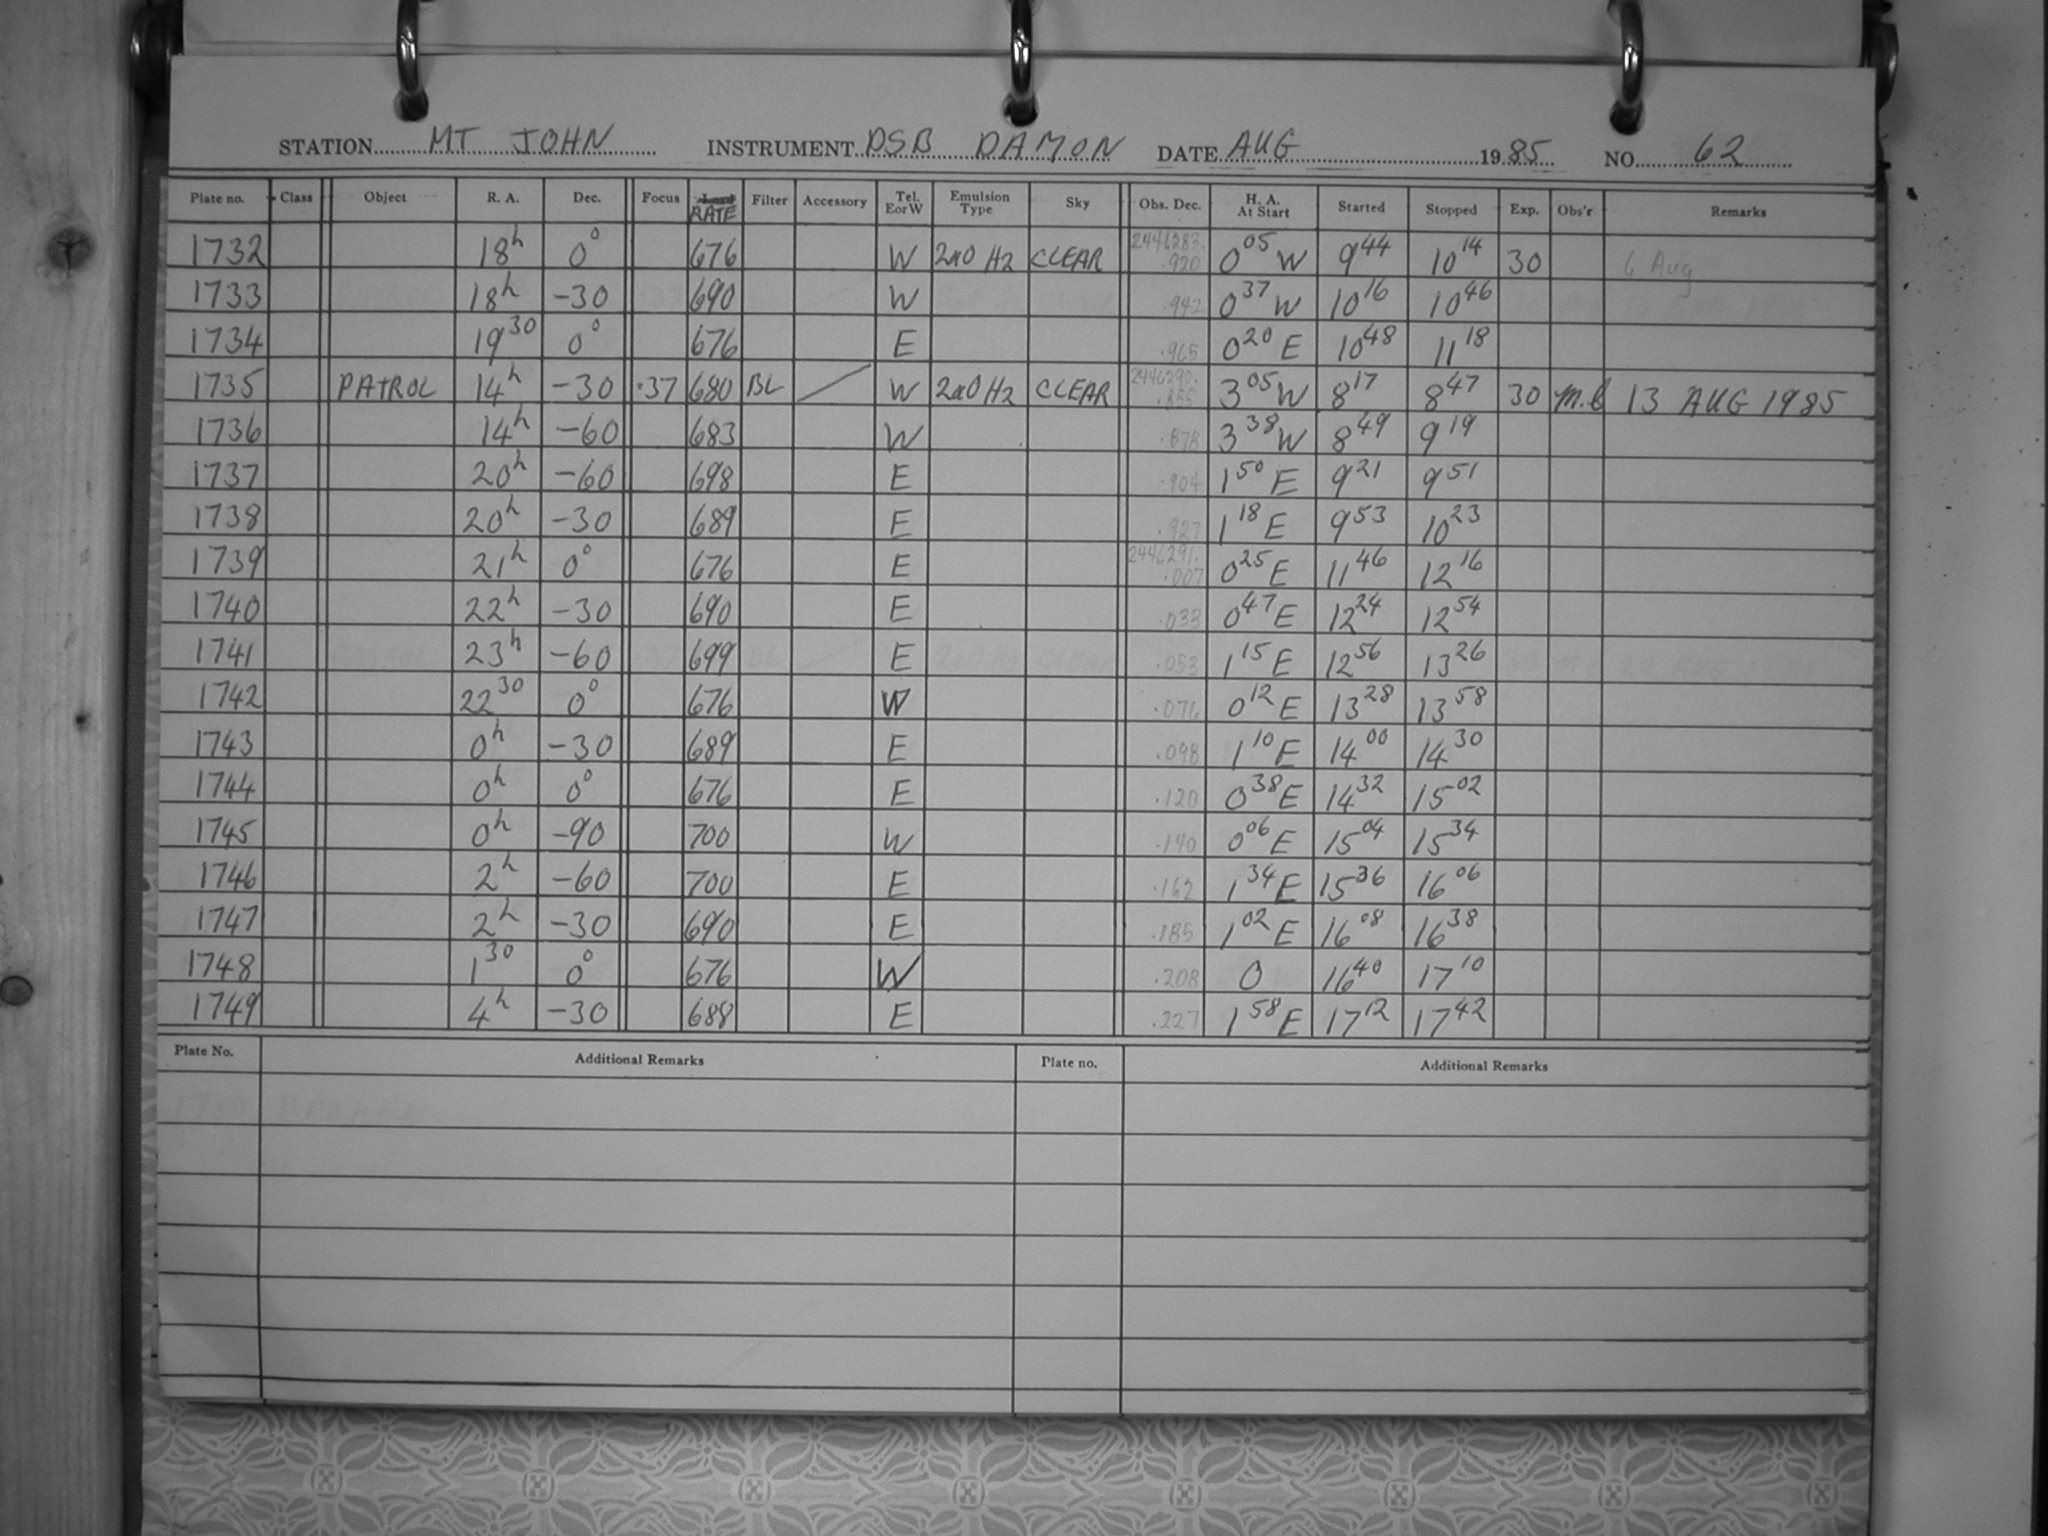 STATION MT JOHN INSTRUMENT DSB DAMON DATE AUG 1985 NO. 62
Plate no. Class Object R. A. Dec. Focus RATE Filter Accessory Tel. E or W Emulsion Type Sky Obs. Dec. H. A. At Start Started Stopped Exp. Obs'r Remarks
1732 18h 0° 676 W 2a0 H2 CLEAR 2446283. .920 0 05 W 9 44 10 14 30 6 Aug
1733 18h -30 690 W .942 0 37 W 10 16 10 46
1734 19 30 0° 676 E .965 0 20 E 10 48 11 18
1735 PATROL 14h -30 .37 680 BL W 2a0 H2 CLEAR 2446290. 3 05 W 8 17 8 47 30 13 AUG 1985
1736 14h -60 683 W .878 3 38 W 8 49 9 19
1737 20h -60 698 E .904 1 50 E 9 21 9 51
1738 20h -30 689 E .927 1 18 E 9 53 10 23
1739 21h 0° 676 E 2446291. .007 0 25 E 11 46 12 16
1740 22h -30 690 E .033 0 47 E 12 24 12 54
1741 23h -60 699 E .053 1 15 E 12 56 13 26
1742 22 30 0° 676 W .076 0 12 E 13 28 13 58
1743 0h -30 689 E .098 1 10 E 14 00 14 30
1744 0h 0° 676 E .120 0 38 E 14 32 15 02
1745 0h -90 700 W .140 0 06 E 15 04 15 34
1746 2h -60 700 E .162 1 34 E 15 36 16 06
1747 2h -30 690 E .185 1 02 E 16 08 16 38
1748 1 30 0° 676 W .208 0 16 40 17 10
1749 4h -30 688 E .227 1 58 E 17 12 17 42
Plate No. Additional Remarks Plate no. Additional Remarks